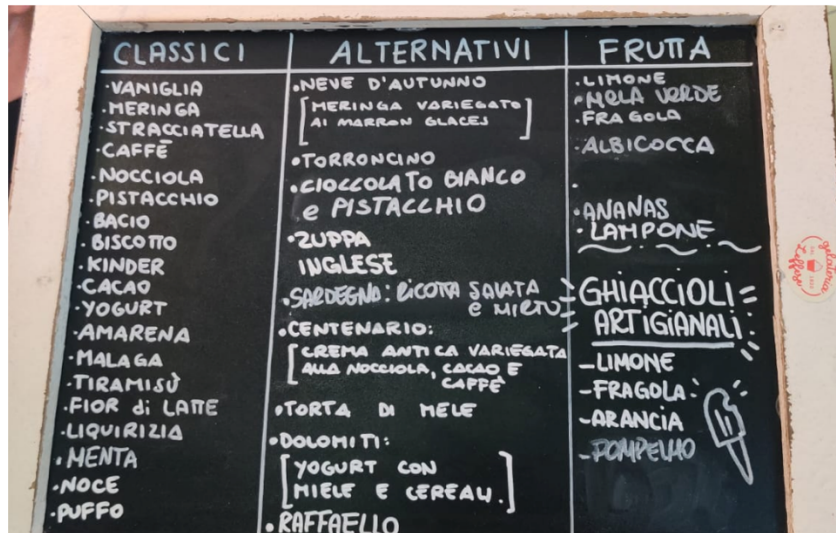 CLASSICI
·VANIGLIA
·MERINGA
·STRACCIATELLA
·CAFFÈ
·NOCCIOLA
·PISTACCHIO
·BACIO
·BISCOTTO
·KINDER
·CACAO
·YOGURT
·AMARENA
·MALAGA
·TIRAMISÙ
·FIOR di LATTE
·LIQUIRIZIA
·MENTA
·NOCE
·PUFFO
ALTERNATIVI
·NEVE D'AUTUNNO
[MERINGA VARIEGATO
AI MARRON GLACES]
·TORRONCINO
·CIOCCOLATO BIANCO
e PISTACCHIO
·ZUPPA
INGLESE
·SARDEGNA: RICOTTA SALATA
e MIRTO
·CENTENARIO:
[CREMA ANTICA VARIEGATA
ALLA NOCCIOLA, CACAO E
CAFFÈ
·TORTA DI MELE
·DOLOMITI:
[YOGURT CON
MIELE E CEREALI.]
·RAFFAELLO
FRUTTA
·LIMONE
·MELA VERDE
·FRAGOLA
·ALBICOCCA
·
·ANANAS
·LAMPONE
GHIACCIOLI
ARTIGIANALI
-LIMONE
-FRAGOLA
-ARANCIA
-POMPELMO
gelateria